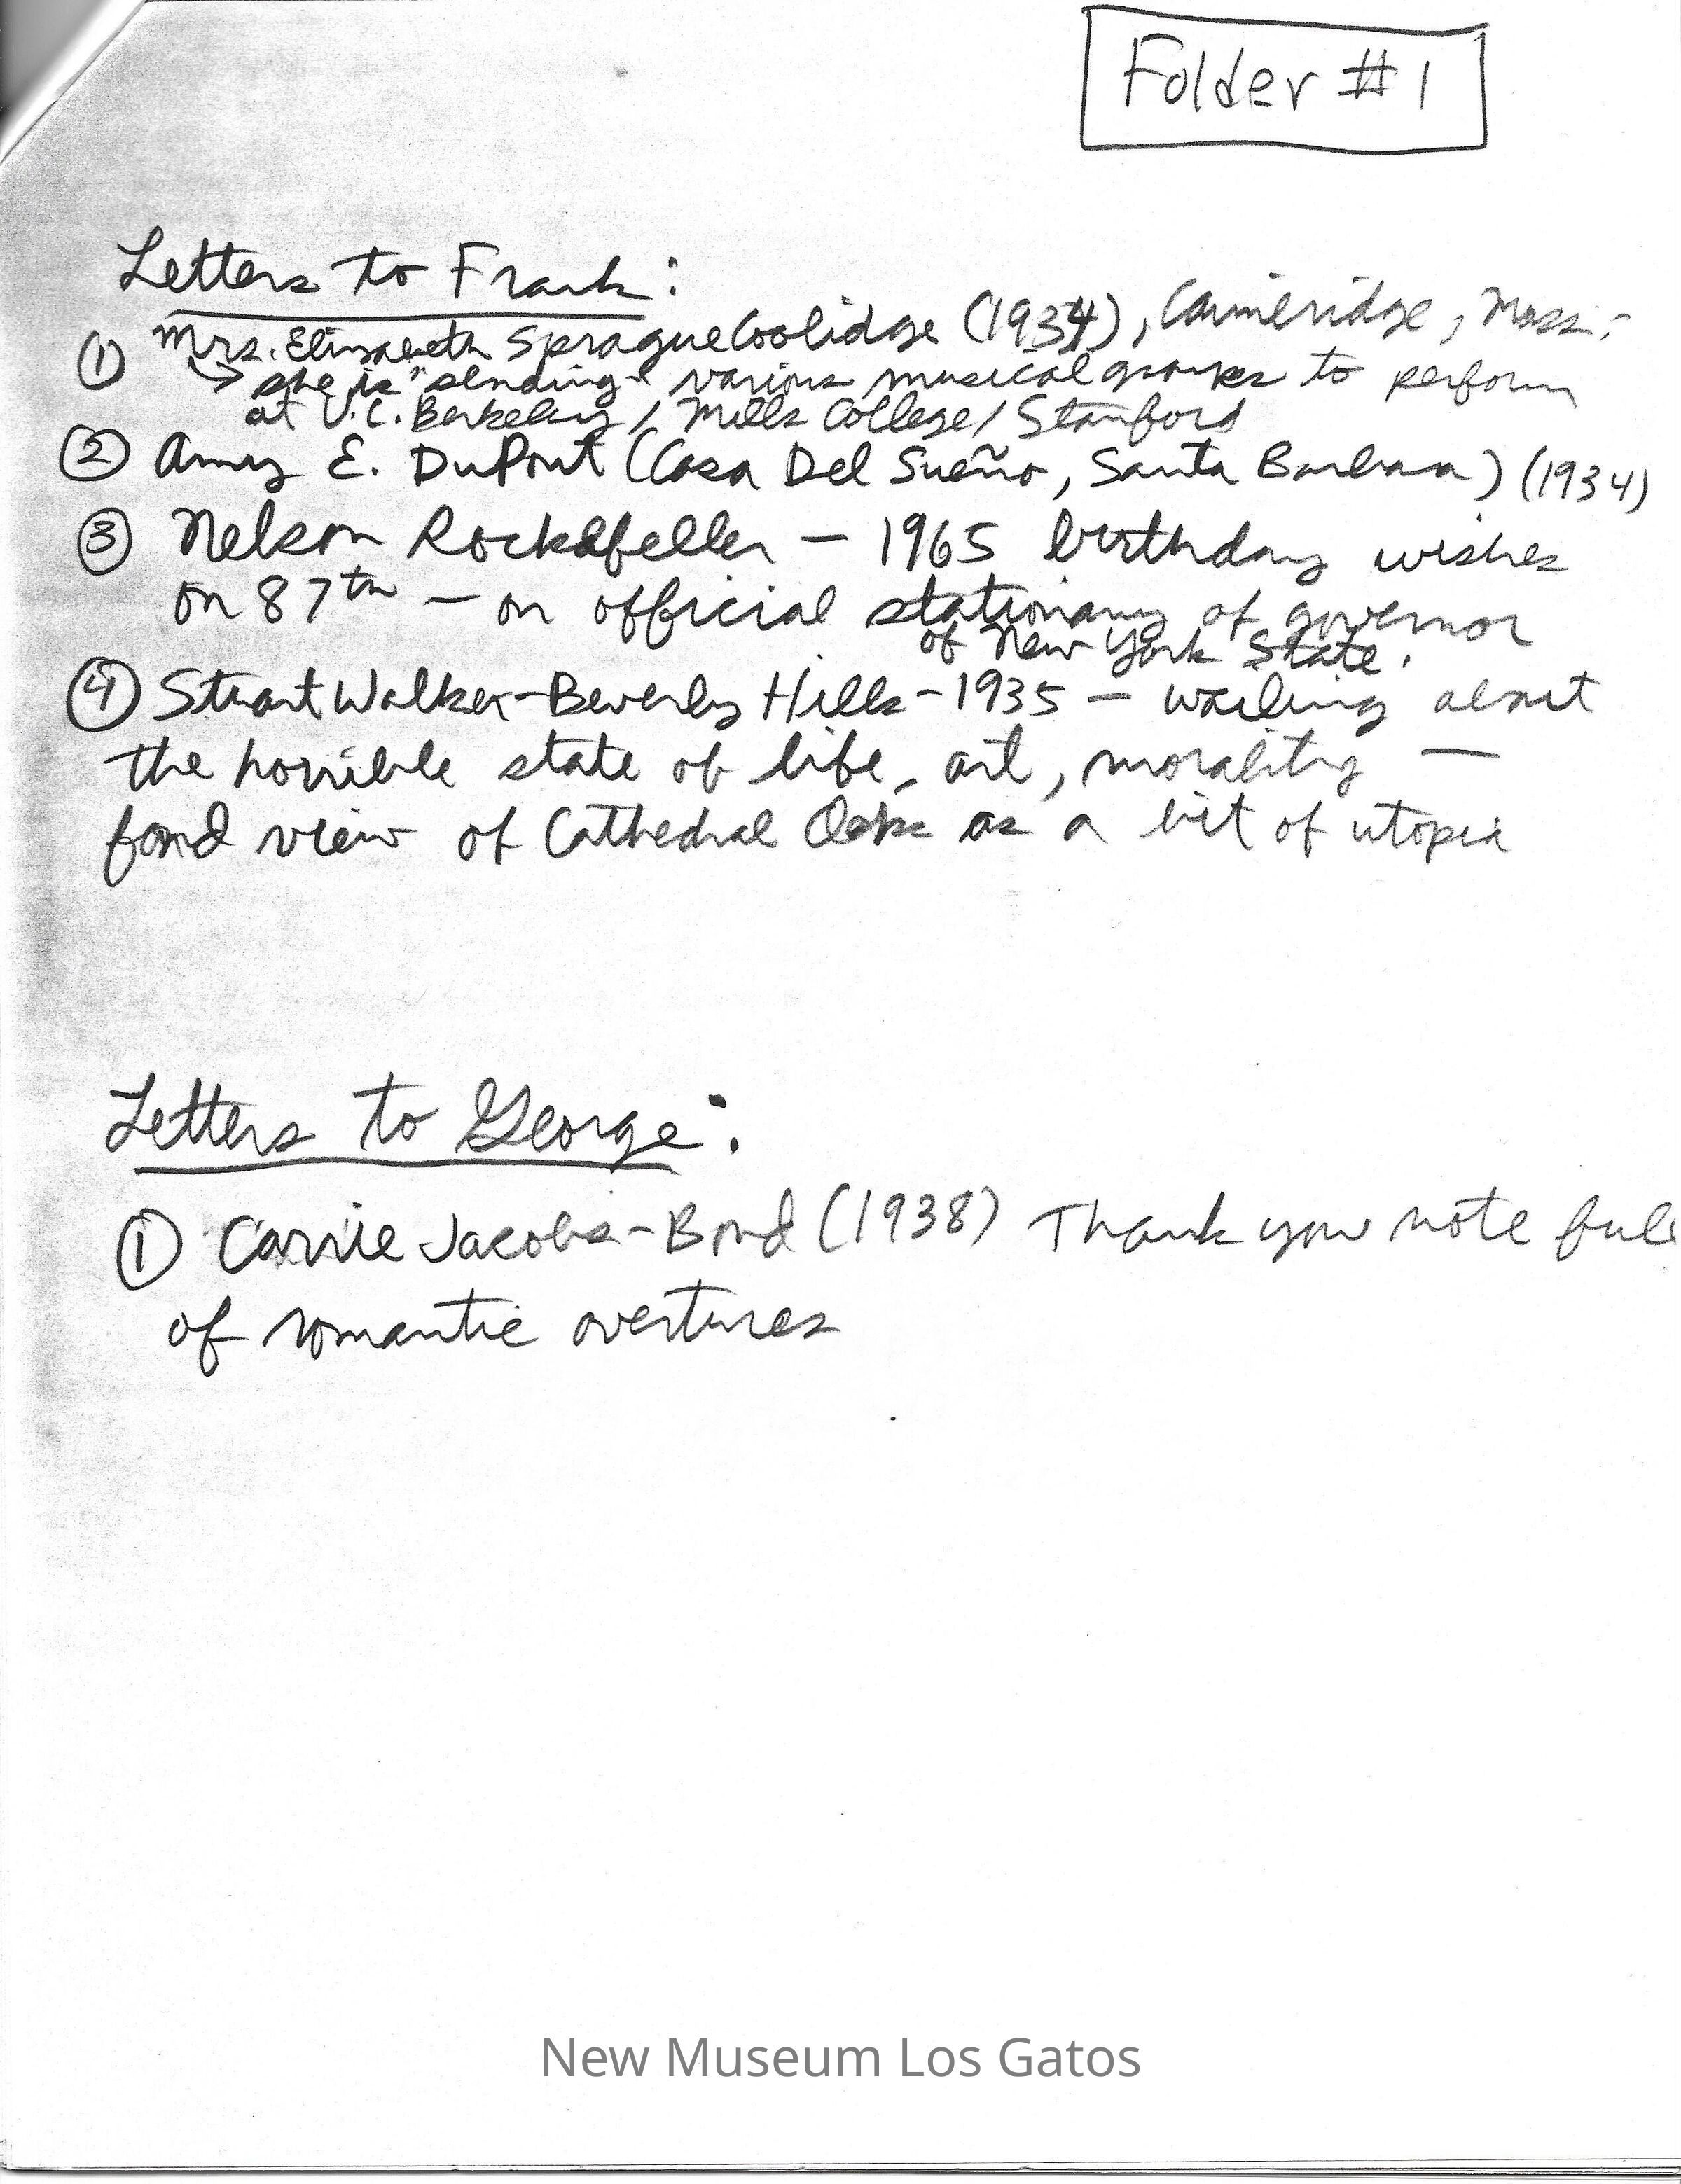 Folder #1
Letters to Frank:
① Mrs. Elizabeth Sprague Coolidge (1934), Cambridge, Mass.-
→ she is "sending" various musical groups to perform
at U.C. Berkeley / Mills College / Stanford
② Amy E. DuPont (Casa Del Sueño, Santa Barbara) (1934)
③ Nelson Rockefeller — 1965 birthday wishes
on 87th — on official stationary of governor
of New York State.
④ Stuart Walker-Beverly Hills-1935 — wailing about
the horrible state of life, art, morality —
fond view of Cathedral Oaks as a bit of utopia
Letters to George:
① Carrie Jacobs-Bond (1938) Thank you note full
of romantic overtures
New Museum Los Gatos